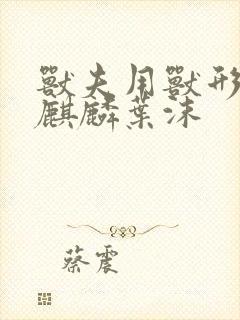 獸夫用獸形
麒麟葉沫
蔡震